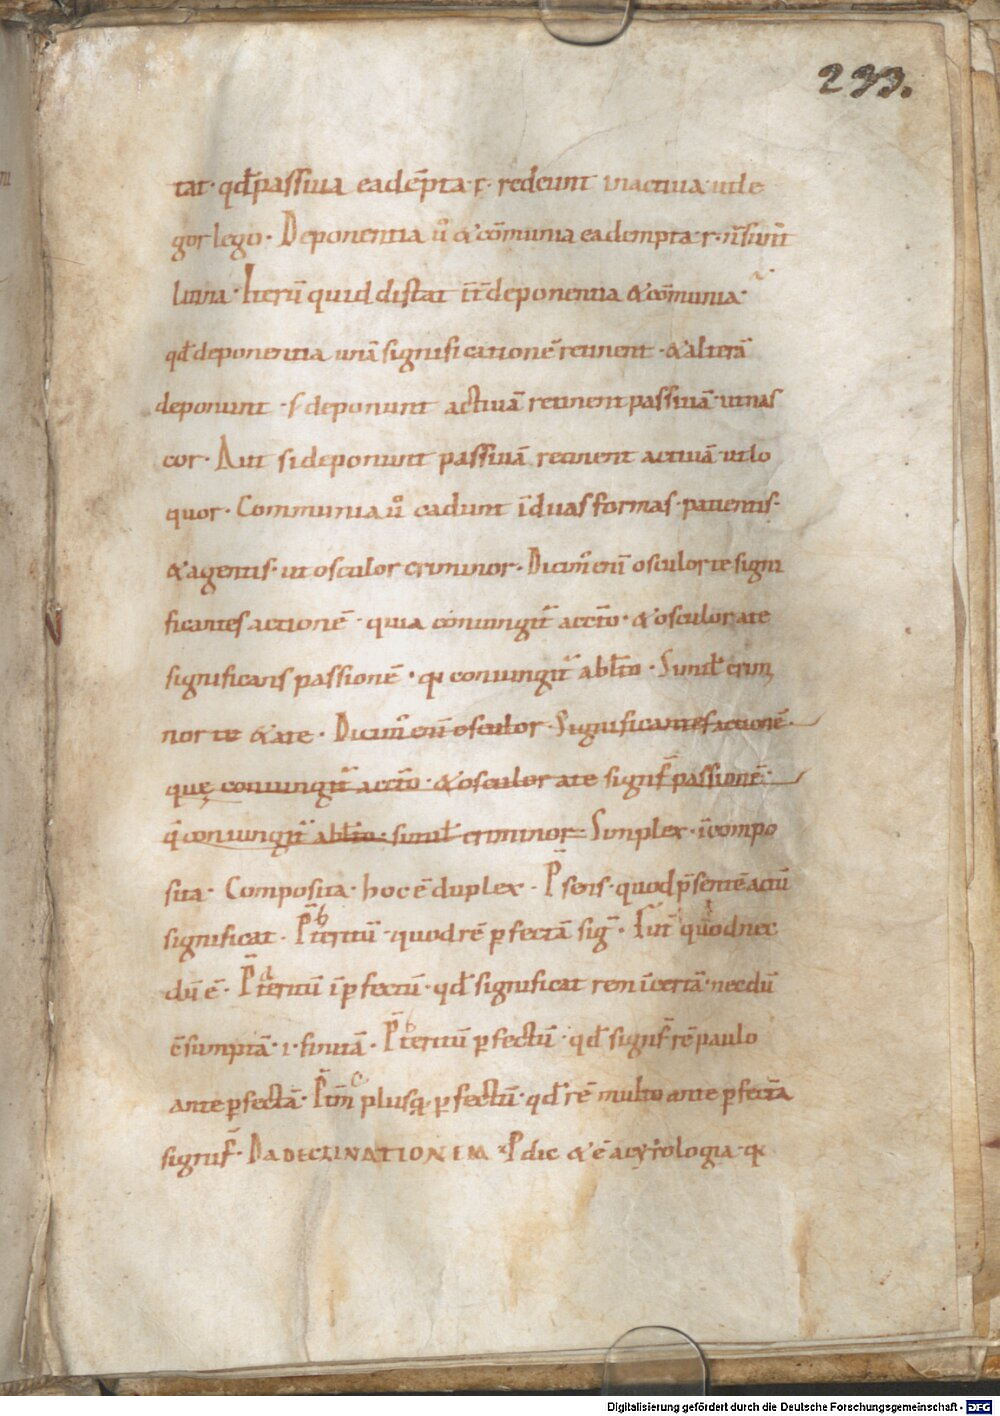 233.
tat· qđ passiua eadēpta ·r· redeunt in actiua· ut le
gor lego· Deponentia ů & cōmunia eadempta ·r· ñ sunt
latina· Iterū quid distat int̄ deponentia & cōmunia·
qđ deponentia unā significationē retinent · & alterā
deponunt · s deponunt actiuā retinent passiuā· ut nas
cor· Aut si deponunt passiuā retinent actiuā· ut lo
quor· Communia ů cadunt ī duas formas· patientis·
& agentis· ut osculor criminor· Dicim' enī osculor te signi
ficantes actionē · quia coniungit̄ acc̄to· & osculor a te
significans passionē · q coniungit̄ abłto · Similit̄ crim
nor te & a te · Dicim' enī osculor· Significantes actionē·
quę coniungit̄ acc̄to· & osculor a te signif̄ passionē·
q coniungit̄ abłto· simił criminor Simplex· īcompo
sita· Composita· hoc ē duplex · P̄sens· quod p̄sentē actū
significat· P̄teritū· quod rē pfectā siḡ· Fut̄ quod nec
dū ē· P̄teritū īpfectū· qđ significat rem īcertā· necdū
ē sumptā· i· finitā· P̄teritū pfectū· qđ signif̄ rē paulo
ante pfectā· P̄tm̄ plusq pfectū· qđ rē multo ante pfectā
signif̄· DA DECLINATIONEM · P dic & ē acyrologia· q
Digitalisierung gefördert durch die Deutsche Forschungsgemeinschaft - DFG